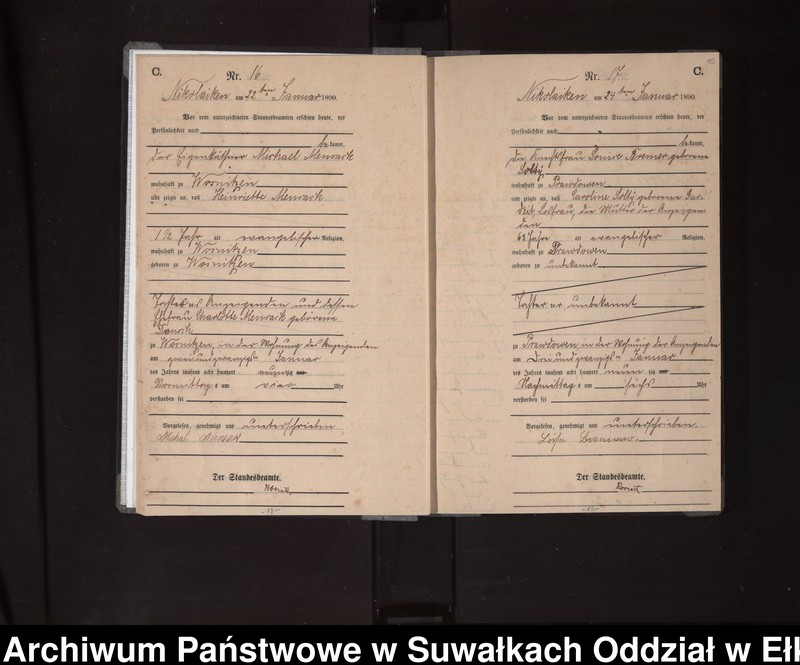 C.
Nr. 16
Nikolaiken am 22ten Januar 1890.
Vor dem unterzeichneten Standesbeamten erschien heute, der
Persönlichkeit nach
be kannt,
der Eigenkäthner Michael Mensack
wohnhaft zu Wosnitzen
und zeigte an, daß Henriette Mensack
1 1/2 Jahr alt evangelischer Religion,
wohnhaft zu Wosnitzen
geboren zu Wosnitzen
Tochter des Anzeigenden und dessen
Ehefrau Charlotte Mensack geborene
zu Wosnitzen, in der Wohnung des Anzeigenden
am zweiundzwanzigsten Januar
des Jahres tausend acht hundert neunzig
Vormittags um vier Uhr
verstorben sei
Vorgelesen, genehmigt und unterschrieben
Der Standesbeamte.
C.
Nr. 17
Nikolaiken am 24ten Januar 1890.
Vor dem unterzeichneten Standesbeamten erschien heute, der
Persönlichkeit nach
be kannt,
die Knechtsfrau Louise Kremer geborene
Solty
wohnhaft zu Prawdowen
und zeigte an, daß Caroline Solty geborene
Losfrau, die Mutter der Anzeigen
den
63 Jahre alt evangelischer Religion,
wohnhaft zu Prawdowen
geboren zu unbekannt
Tochter unbekannt
zu Prawdowen in der Wohnung der Anzeigenden
am Dreiundzwanzigsten Januar
des Jahres tausend acht hundert neunzig
Nachmittags um sechs Uhr
verstorben sei
Vorgelesen, genehmigt und unterschrieben.
Der Standesbeamte.
Archiwum Państwowe w Suwałkach Oddział w Ełk